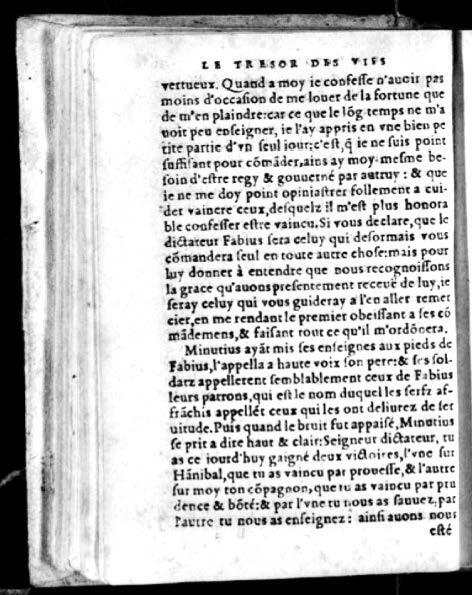 LE TRESOR DES VIES
vertueux. Quand a moy ie confesse n'auoir pas
moins d'occasion de me louer de la fortune que
de m'en plaindre: car ce que le lõg temps ne m'a
uoit peu enseigner, ie l'ay appris en vne bien pe
tite partie d'vn seul iour: c'est, q̃ ie ne suis point
suffisant pour cõmãder, ains ay moy-mesme be-
soin d'estre regy & gouuerné par autruy: & que
ie ne me doy point opiniastrer follement a cui-
der vaincre ceux, desquelz il m'est plus honora
ble confesser estre vaincu. Si vous declare, que le
dictateur Fabius sera celuy qui desormais vous
cõmandera seul en toute autre chose: mais pour
luy donner à entendre que nous recognoissons
la grace qu'auons presentement receuë de luy, ie
seray celuy qui vous guideray a l'en aller remer
cier, en me rendant le premier obeissant a ses cõ
mãdemens, & faisant tout ce qu'il m'ordõnera.
Minutius ayãt mis ses enseignes aux pieds de
Fabius, l'appella a haute voix son pere: & ses sol-
datz appellerent semblablement ceux de Fabius
leurs patrons, qui est le nom duquel les serfz af-
frãchis appellẽt ceux qui les ont deliurez de ser
uitude. Puis quand le bruit fut appaisé, Minutius
se prit a dire haut & clair: Seigneur dictateur, tu
as ce iourd'huy gaigné deux victoires, l'vne sur
Hãnibal, que tu as vaincu par prouesse, & l'autre
sur moy ton cõpagnon, que tu as vaincu par pru
dence & bõté: & par l'vne tu nous as sauuez, par
l'autre tu nous as enseignez: ainsi auons nous
esté